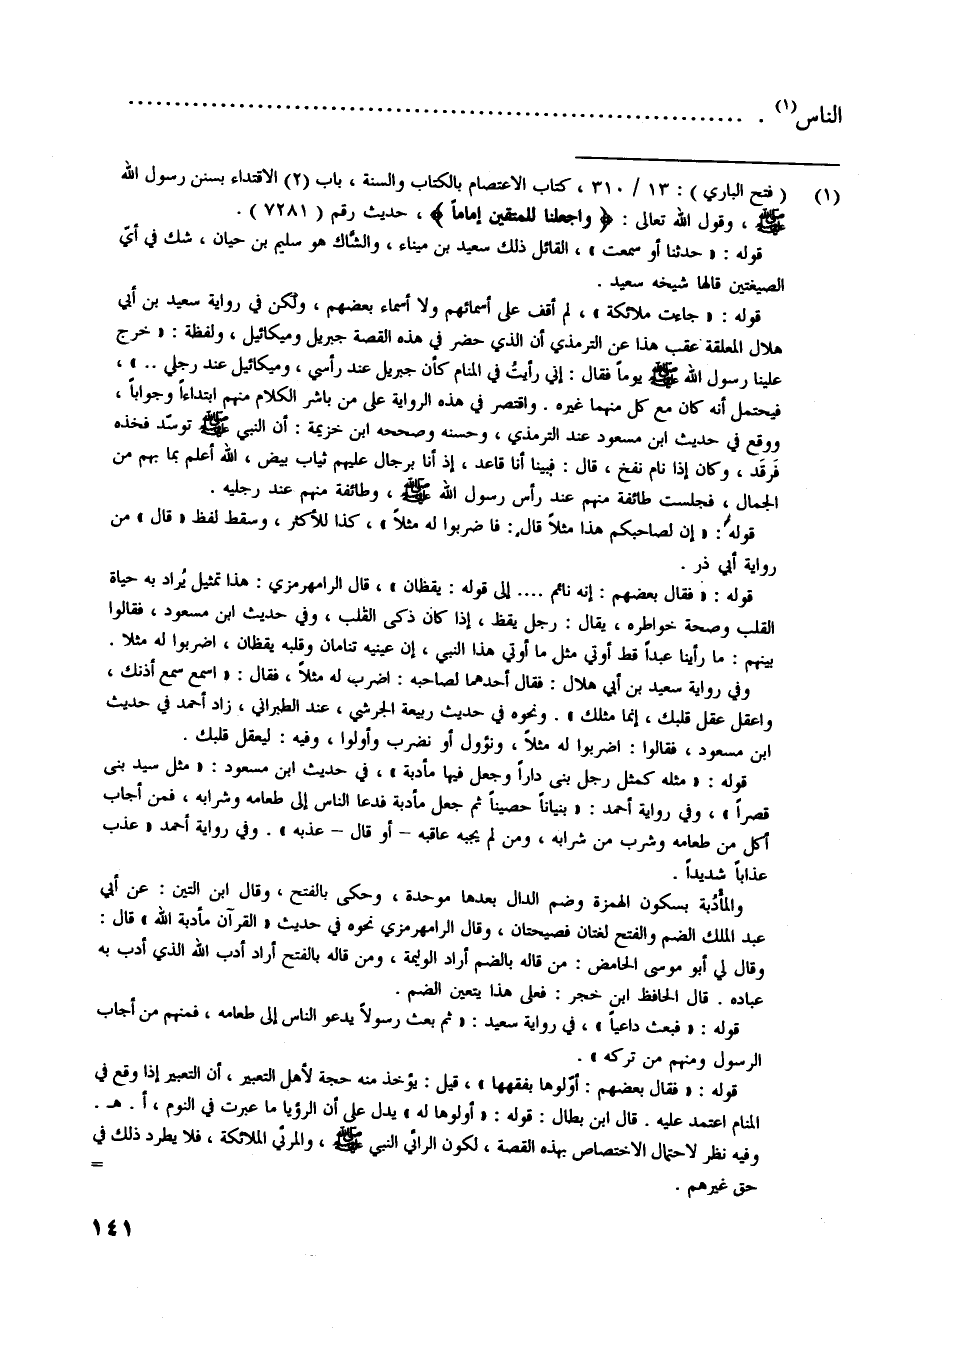 الناس (١) . ..........................................................
(١) ( فتح الباري ) : ١٣ / ٣١٠ ، كتاب الاعتصام بالكتاب والسنة ، باب (٢) الاقتداء بسنن رسول الله
ﷺ ، وقول الله تعالى : ﴿ واجعلنا للمتقين إماماً ﴾ ، حديث رقم ( ٧٢٨١ ) .
قوله : « حدثنا أو سمعت » ، القائل ذلك سعيد بن ميناء ، والشاك هو سليم بن حيان ، شك في أيّ
الصيغتين قالها شيخه سعيد .
قوله : « جاءت ملائكة » ، لم أقف على أسمائهم ولا أسماء بعضهم ، ولكن في رواية سعيد بن أبي
هلال المعلقة عقب هذا عن الترمذي أن الذي حضر في هذه القصة جبريل وميكائيل ، ولفظة : « خرج
علينا رسول الله ﷺ يوماً فقال : إني رأيتُ في المنام كأن جبريل عند رأسي ، وميكائيل عند رجلي .. » ،
فيحتمل أنه كان مع كل منهما غيره . واقتصر في هذه الرواية على من باشر الكلام منهم ابتداءاً وجواباً ،
ووقع في حديث ابن مسعود عند الترمذي ، وحسنه وصححه ابن خزيمة : أن النبي ﷺ توسّد فخذه
فَرقَد ، وكان إذا نام نفخ ، قال : فبينا أنا قاعد ، إذ أنا برجال عليهم ثياب بيض ، الله أعلم بما بهم من
الجمال ، فجلست طائفة منهم عند رأس رسول الله ﷺ ، وطائفة منهم عند رجليه .
قوله : « إن لصاحبكم هذا مثلاً قال : فا ضربوا له مثلاً » ، كذا للأكثر ، وسقط لفظ « قال » من
رواية أبي ذر .
قوله : « فقال بعضهم : إنه نائم .... إلى قوله : يقظان » ، قال الرامهرمزي : هذا تمثيل يُراد به حياة
القلب وصحة خواطره ، يقال : رجل يقظ ، إذا كان ذكى القلب ، وفي حديث ابن مسعود ، فقالوا
بينهم : ما رأينا عبداً قط أوتي مثل ما أوتي هذا النبي ، إن عينيه تنامان وقلبه يقظان ، اضربوا له مثلا .
وفي رواية سعيد بن أبي هلال : فقال أحدهما لصاحبه : اضرب له مثلاً ، فقال : « اسمع سمع أذنك ،
واعقل عقل قلبك ، إنما مثلك » . ونحوه في حديث ربيعة الجرشي ، عند الطبراني ، زاد أحمد في حديث
ابن مسعود ، فقالوا : اضربوا له مثلاً ، ونؤول أو نضرب وأولوا ، وفيه : ليعقل قلبك .
قوله : « مثله كمثل رجل بنى داراً وجعل فيها مأدبة » ، في حديث ابن مسعود : « مثل سيد بنى
قصراً » ، وفي رواية أحمد : « بنياناً حصيناً ثم جعل مأدبة فدعا الناس إلى طعامه وشرابه ، فمن أجاب
أكل من طعامه وشرب من شرابه ، ومن لم يجبه عاقبه – أو قال – عذبه » . وفي رواية أحمد « عذب
عذاباً شديداً .
والمأدُبة بسكون الهمزة وضم الدال بعدها موحدة ، وحكى بالفتح ، وقال ابن التين : عن أبي
عبد الملك الضم والفتح لغتان فصيحتان ، وقال الرامهرمزي نحوه في حديث « القرآن مأدبة الله » قال :
وقال لي أبو موسى الحامض : من قاله بالضم أراد الوليمة ، ومن قاله بالفتح أراد أدب الله الذي أدب به
عباده . قال الحافظ ابن خجر : فعلى هذا يتعين الضم .
قوله : « فبعث داعياً » ، في رواية سعيد : « ثم بعث رسولاً يدعو الناس إلى طعامه ، فمنهم من أجاب
الرسول ومنهم من تركه » .
قوله : « فقال بعضهم : أوّلوها بفقهها » ، قيل : يؤخذ منه حجة لأهل التعبير ، أن التعبير إذا وقع في
المنام اعتمد عليه . قال ابن بطال : قوله : « أولوها له » يدل على أن الرؤيا ما عبرت في النوم ، أ . هـ .
وفيه نظر لاحتمال الاختصاص بهذه القصة ، لكون الرائي النبي ﷺ ، والمرئي الملائكة ، فلا يطرد ذلك في
حق غيرهم . =
١٤١